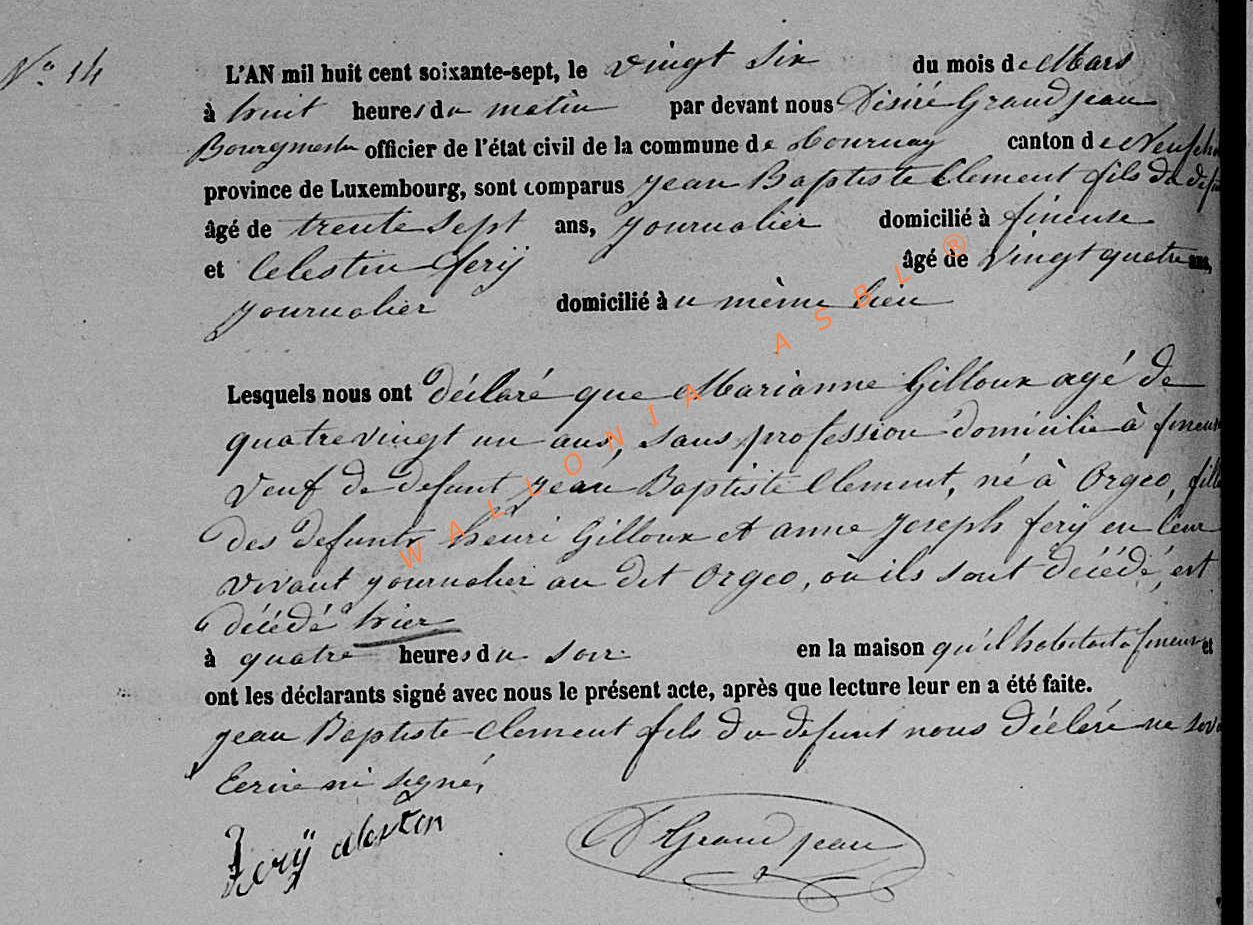 N° 14
L'AN mil huit cent soixante-sept, le vingt six du mois de Mars
à huit heures du matin par devant nous Désiré Grandjean
Bourgmestre officier de l'état civil de la commune de Tournay canton de Neufch
province de Luxembourg, sont comparus Jean Baptiste Clement fils du
âgé de trente sept ans, journalier domicilié à fineuse
et Celestin ferÿ âgé de vingt quatre ans,
journalier domicilié à u même lieu
Lesquels nous ont déclaré que Marianne Gilloux agé de
quatrevingt un ans, sans profession domicilié à fineuse
veuf de defunt jean Baptiste Clement, né à Orgeo, fille
des defunts henri Gilloux et anne joseph ferÿ en leur
vivant journalier au dit Orgeo, où ils sont décédé, est
décédé hier
à quatre heures du soir en la maison qu'il habitait a fineuse et
ont les déclarants signé avec nous le présent acte, après que lecture leur en a été faite.
jean Baptiste Clement fils du defunt nous déclaré ne
Ecrire ni signé,
ferÿ celestin
D Grandjean
WALLONIA ASBL ®